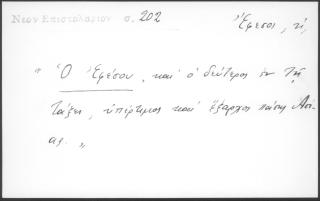 Νέον Επιστολάριον σ. 202
Ἔφεσος, ἡ,
"Ὁ Ἐφέσου, καὶ ὁ δεύτερος ἐν τῇ
τάξει, ὑπέρτιμος καὶ ἔξαρχος πάσης Ἀσί-
ας."